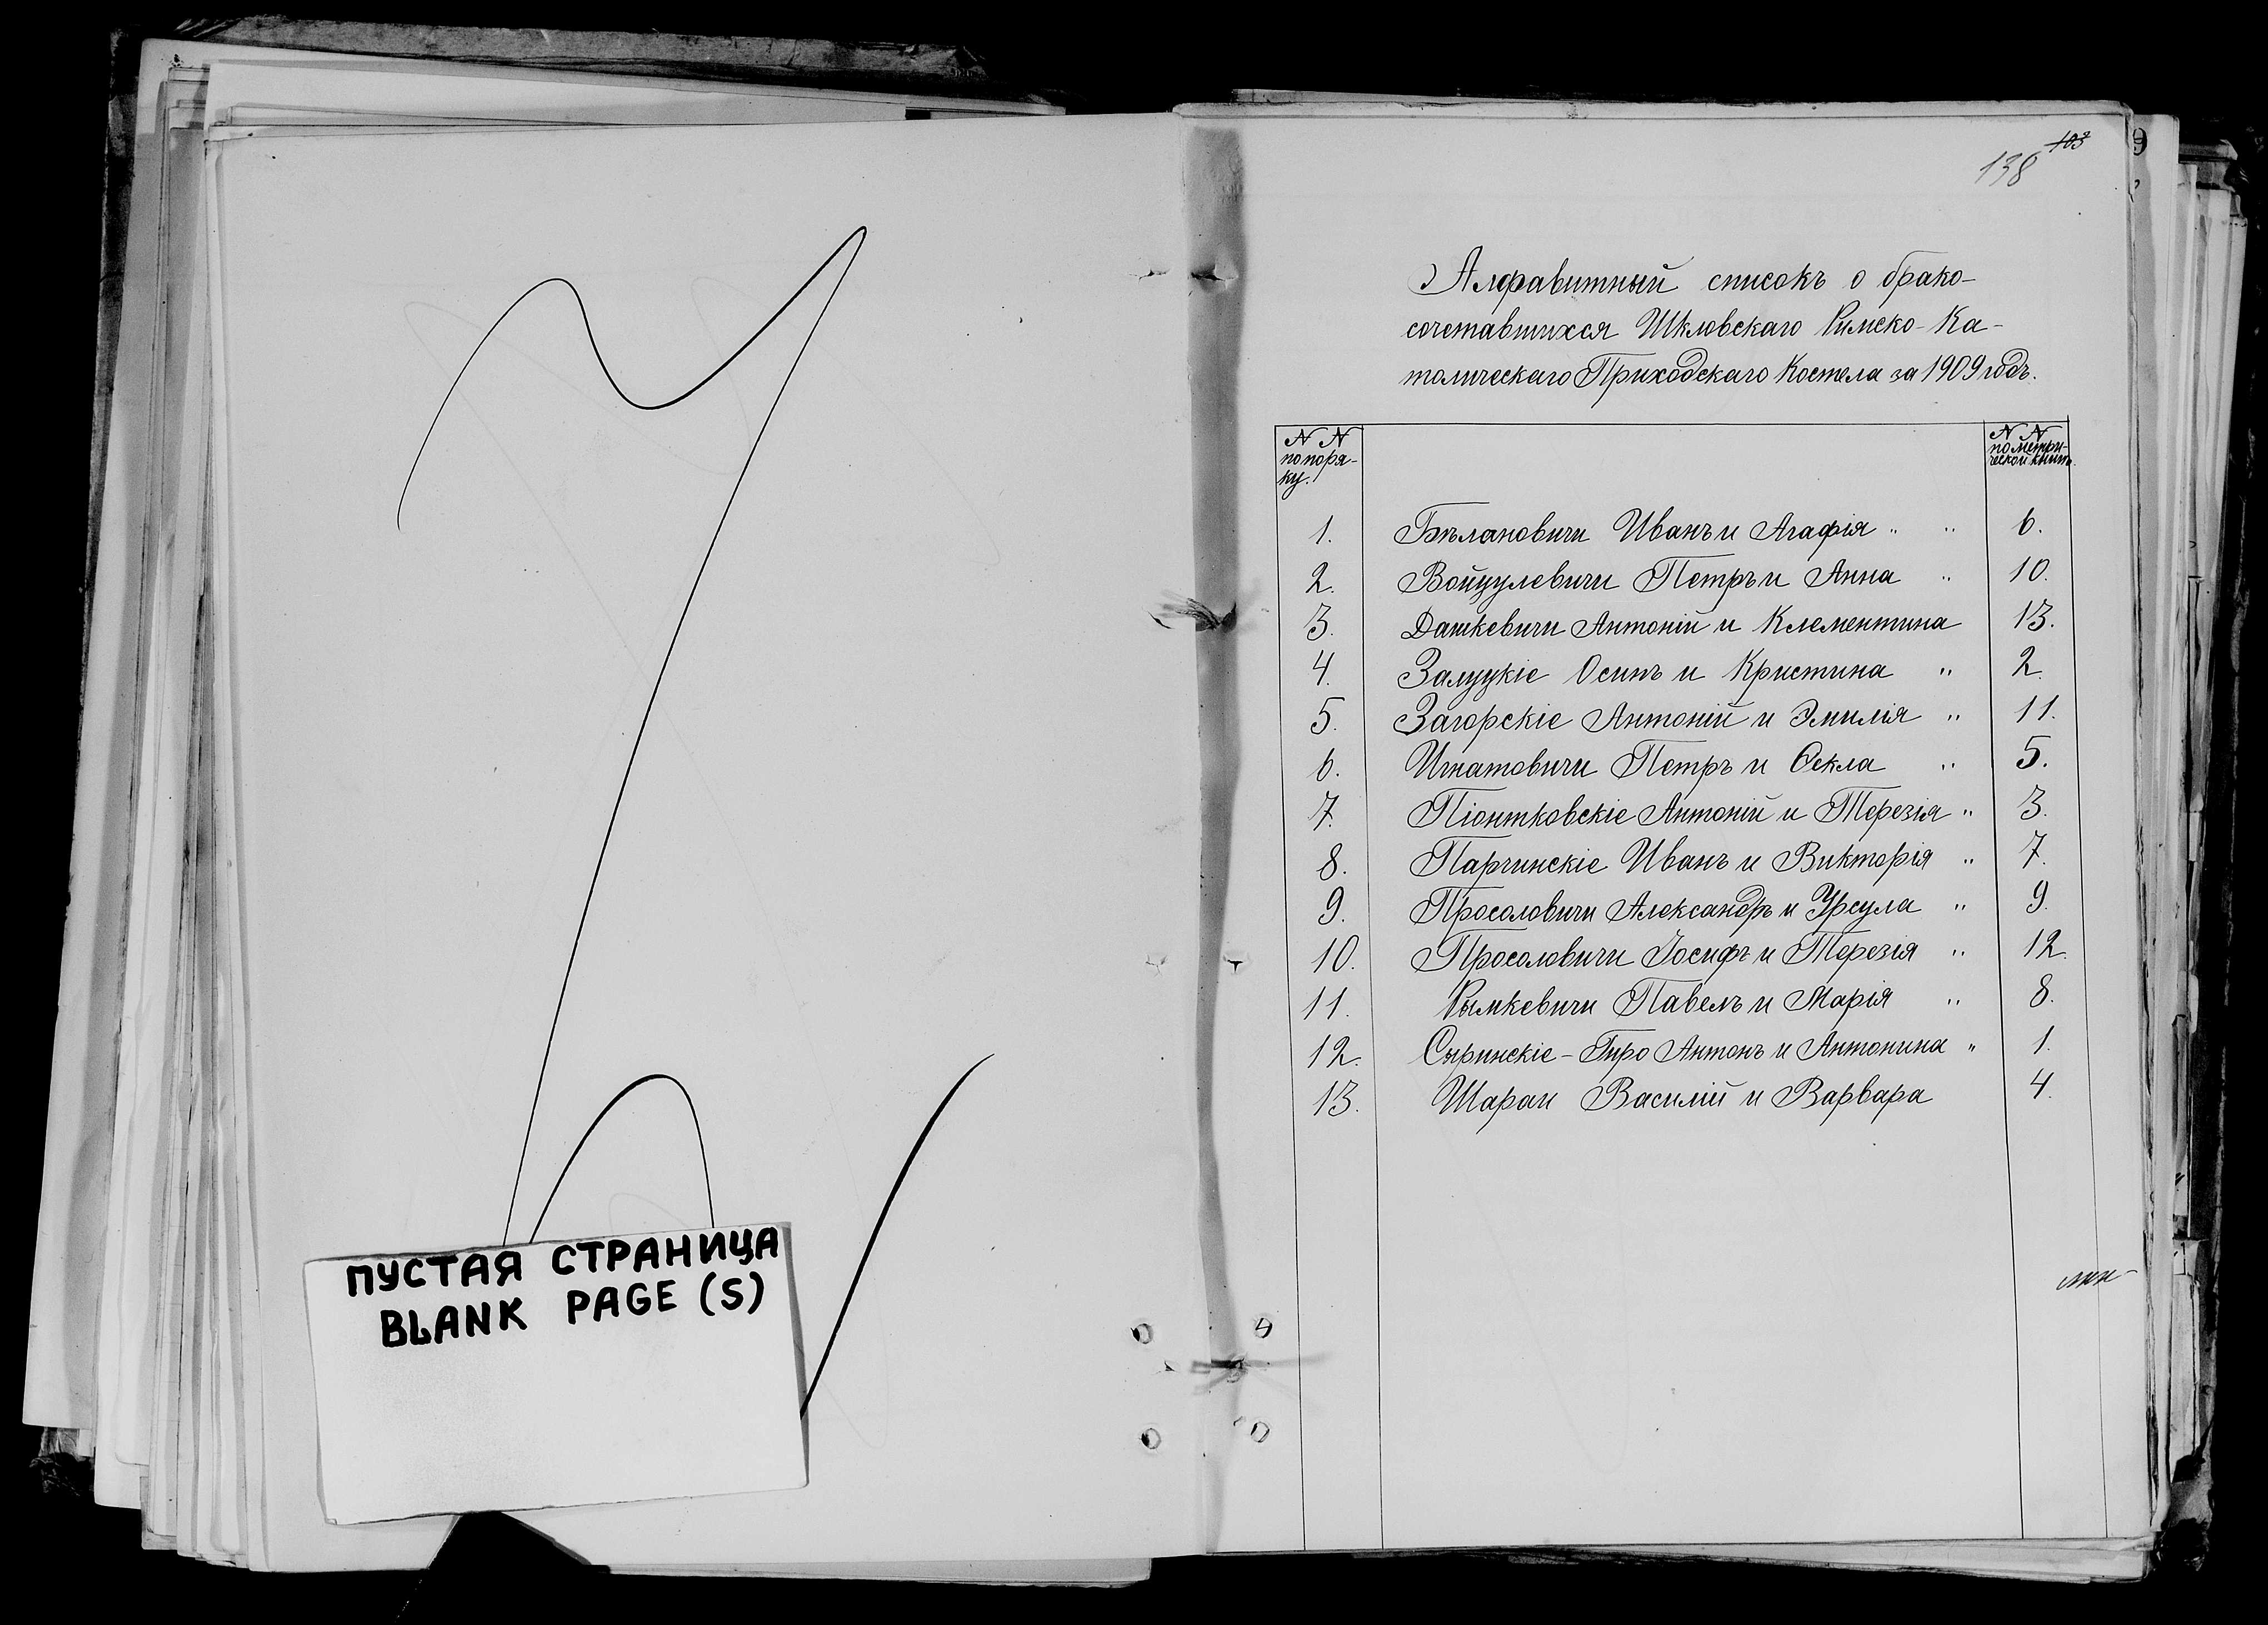 ПУСТАЯ СТРАНИЦА
BLANK PAGE (S)
103
138
Алфавитный списокъ о брако-
сочетавшихся Шкловскаго Римско-Ка-
толическаго Приходскаго Костела за 1909 годъ.
N N
по поря-
ку.
N N
по метри-
ческой книгѣ.
1. Бѣлановичи Иванъ и Агафія " " 6.
2. Войцулевичи Петръ и Анна " 10.
3. Дашкевичи Антоній и Клементина 13.
4. Залуцкіе Осипъ и Кристина " 2.
5. Загорскіе Антоній и Эмилія " 11.
6. Игнатовичи Петръ и Ѳекла " 5.
7. Піонтковскіе Антоній и Терезія " 3.
8. Парчинскіе Иванъ и Викторія " 7.
9. Просоловичи Александръ и Урсула " 9.
10. Просоловичи Іосифъ и Терезія " 12.
11. Рымкевичи Павелъ и Марія " 8.
12. Сыринскіе-Гиро Антонъ и Антонина " 1.
13. Шараи Василій и Варвара 4.